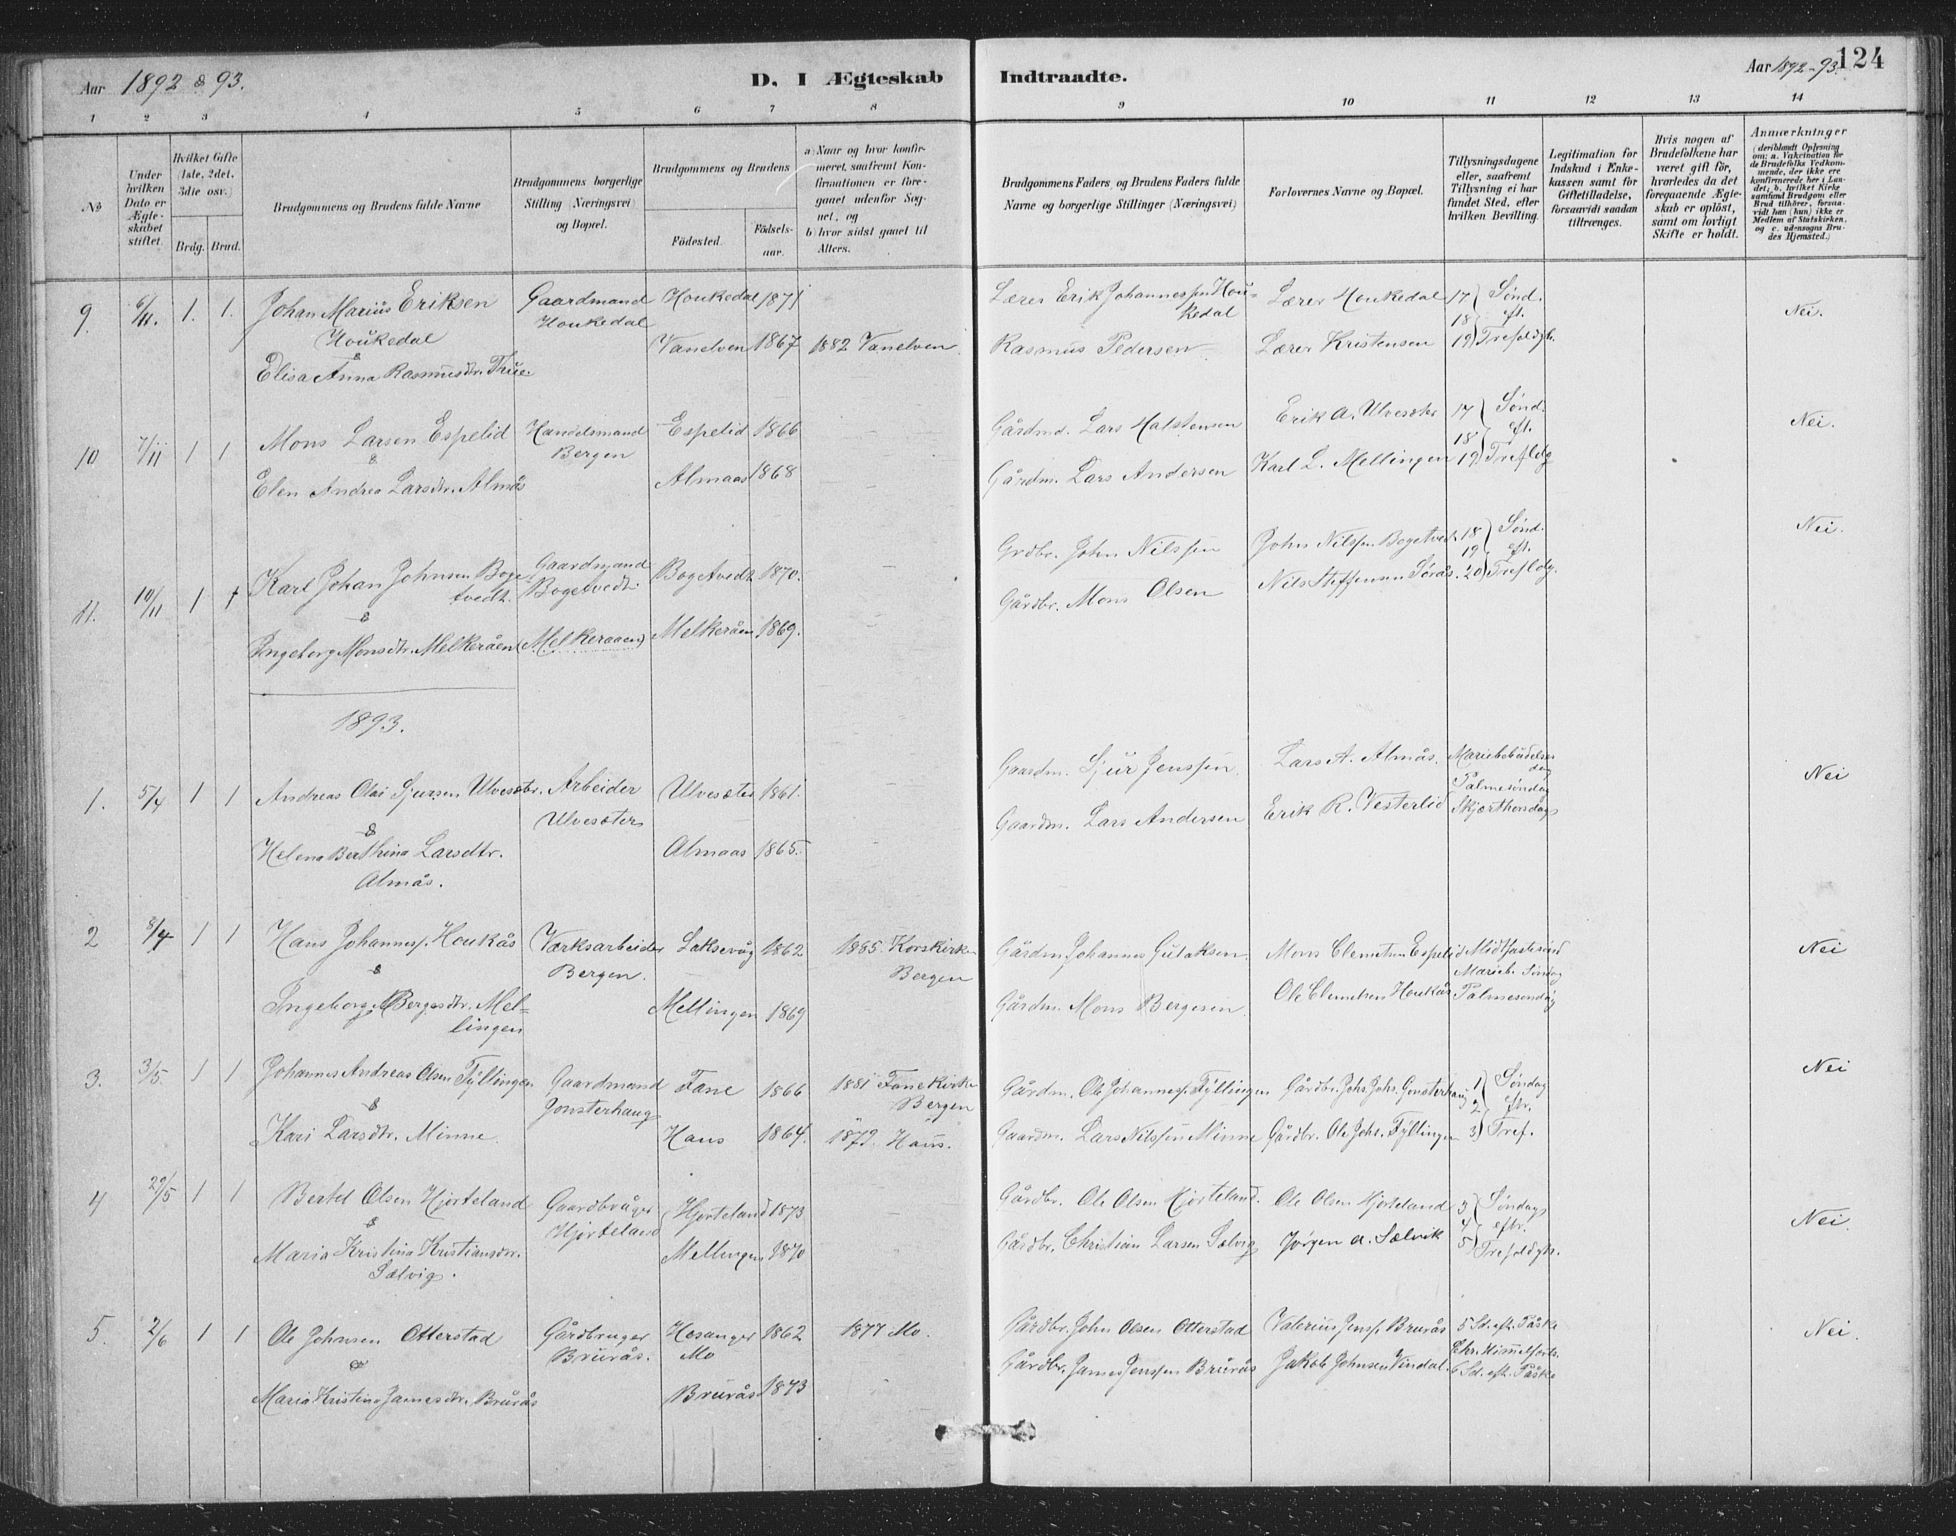 Aar 1892 & 93.
D. I Ægteskab
Indtraadte.
Aar 1892-93.
124
1 2 3 4 5 6 7 8 9 10 11 12 13 14
No
Under hvilken Dato er Ægteskabet stiftet.
Hvilket Gifte (1ste, 2det, 3die osv.)
Brdg. Brud.
Brudgommens og Brudens fulde Navne
Brudgommens borgerlige Stilling (Næringsvei) og Bopæl.
Brudgommens og Brudens
Födested.
Födselsaar.
a) Naar og hvor konfirmeret, saafremt Konfirmationen er foregaaet udenfor Sognet, og
b) hvor sidst gaaet til Alters.
Brudgommens Faders og Brudens Faders fulde Navne og borgerlige Stillinger (Næringsvei)
Forlovernes Navne og Bopæl.
Tillysningsdagene eller, saafremt Tillysning ei har fundet Sted, efter hvilken Bevilling.
Legitimation for Indskud i Enkekassen samt for Giftetilladelse, forsaavidt saadan tiltrænges.
Hvis nogen af Brudefolkene har været gift för, hvorledes da det foregaaende Ægteskab er oplöst, samt om lovligt Skifte er holdt.
Anmærkninger
(deriblandt Oplysning om: a. Vakcination for de Brudefolks Vedkommende, der ikke ere konfirmerede her i Landet; b. hvilket Kirkesamfund Brudgom eller Brud tilhörer, forsaavidt han (hun) ikke er Medlem af Statskirken, og c. udensogns Brudes Hjemsted.)
9. 6/11. 1. 1. Johan Marius Eriksen Houkedal
&
Elisa Anna Rasmusdtr. Thue.
Gaardmand Houkedal
Houkedal 1871
Vanelven 1867 1882 Vanelven.
Lærer Erik Johannessen Houkedal
Rasmus Pedersen
Lærer Houkedal
Lærer Kristensen
17 18 19 Sønd. eft. Trefoldgh.
Nei.
10 7/11 1 1 Mons Larsen Espelid
&
Elen Andrea Larsdtr. Almås
Handelsmand Bergen
Espelid 1866
Almaas 1868
Gårdmd. Lars Halstensen
Gårdm. Lars Andersen
Erik A. Ulvesæter
Karl L. Mellingen
17 18 19 Sønd. eft. Trefldg
Nei.
11. 10/11 1 1 Karl Johan Johnsen Bogetvedt.
&
Ingeborg Monsdtr. Melkeråen
Gaardmand Bogetvedt
(Melkeraaen)
Bogetvedt 1870.
Melkeråen 1869.
Grdbr. John Nilssen
Gårdbr. Mons Olsen
John Nilssen Bogetvedt
Nils Steffensen Sørås
18 19 20 Sønd. eft. Trefldg.
Nei.
1893.
1. 5/4 1 1 Andreas Olai Sjursen Ulvesæter.
&
Helena Berthina Larsdtr. Almås.
Arbeider Ulvesæter
Ulvesæter 1861.
Almaas 1865.
Gaardm. Sjur Jenssen
Gaardm. Lars Andersen
Lars A. Almås.
Erik R. Vesterlid
Mariebebudelsesdag
Palmesøndag
Skjærthorsdag
Nei
2 8/4 1 1 Hans Johanness. Houkås
&
Ingeborg Bergesdtr. Mellingen
Værksarbeider Bergen.
Laksevåg 1862 1885 Korskirken Bergen
Mellingen 1869
Gårdm. Johannes Gutaksen
Gårdm. Mons Bergesen
Mons Clemetsen Espelid
Ole Clemetsen Houkås
Midtfastesønd
Marieb. Søndag
Palmesøndag
Nei
3. 3/5. 1 1 Johannes Andreas Olsen Fyllingen
&
Kari Larsdtr. Minne.
Gaardmand Jonsterhaug
Fane 1866 1881 Fanekirke Bergen
Haus 1864. 1879. Haus.
Gårdm. Ole Johanness. Fyllingen
Gaardm. Lars Nilssen Minne
Gårdbr. Johs Johs. Gonsterhaug
Gårdbr. Ole Johs. Fyllingen
1 2 3 Søndag eftr. Tref.
Nei
4 29/5 1 1 Bertel Olsen Hjorteland
&
Maria Kristina Kristiansdtr. Sælvig.
Gaardbruger Hjorteland
Hjorteland 1873
Mellingen 1870
Gårdbr. Ole Olsen Hjorteland.
Gårdbr. Christian Larsen Sælvig
Ole Olsen Hjorteland
Jørgen A. Sælvik
3 4 5 Søndag eftr. Trefoldgh.
Nei.
5. 2/6 1 1 Ole Johnsen Otterstad
&
Maria Kristina Jamesdtr. Brurås
Gårdbruger Brurås.
Hosanger Mo 1862 1877 Mo.
Brurås 1873
Gårdbr. John Olsen Otterstad
Gårdbr. James Jenssen Brurås
Valerius Jenss. Brurås
Jakob Johnsen Vindal.
5 Sd. eft. Påske
Chr. Himmelfarts.
6 Sd. eft. Påske
Nei.